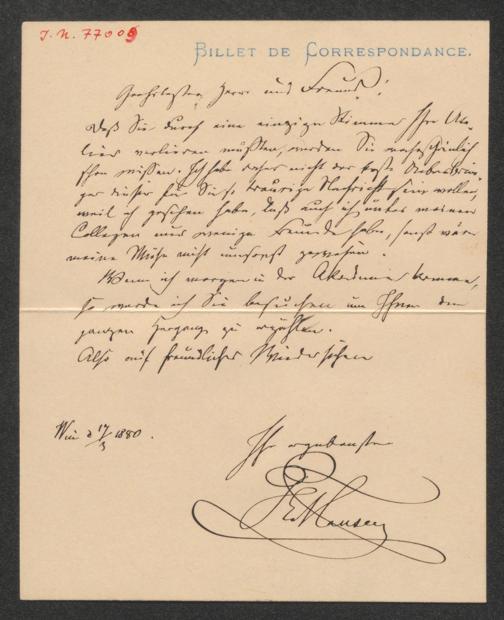 J. N. 77008
BILLET DE CORRESPONDANCE.
Geehrtester Herr und Freund!
Daß Sie durch eine einzige Stimme Ihr Ate-
lier verlieren mußten, werden Sie wahrscheinlich
schon wissen. Ich habe daher nicht der erste Überbrin-
ger dieser für Sie so traurige Nachricht sein wollen,
weil ich gesehen habe, daß auch ich unter meinen
Collegen nur wenige Freunde habe, sonst wäre
meine Mühe nicht umsonst gewesen.
Wenn ich morgen in der Akademie komme,
so werde ich Sie besuchen um Ihnen den
ganzen Hergang zu erzählen.
Also auf freundliches Wiedersehen
Wien d 17/3 1880.
Ihr ergebenster
Hansen